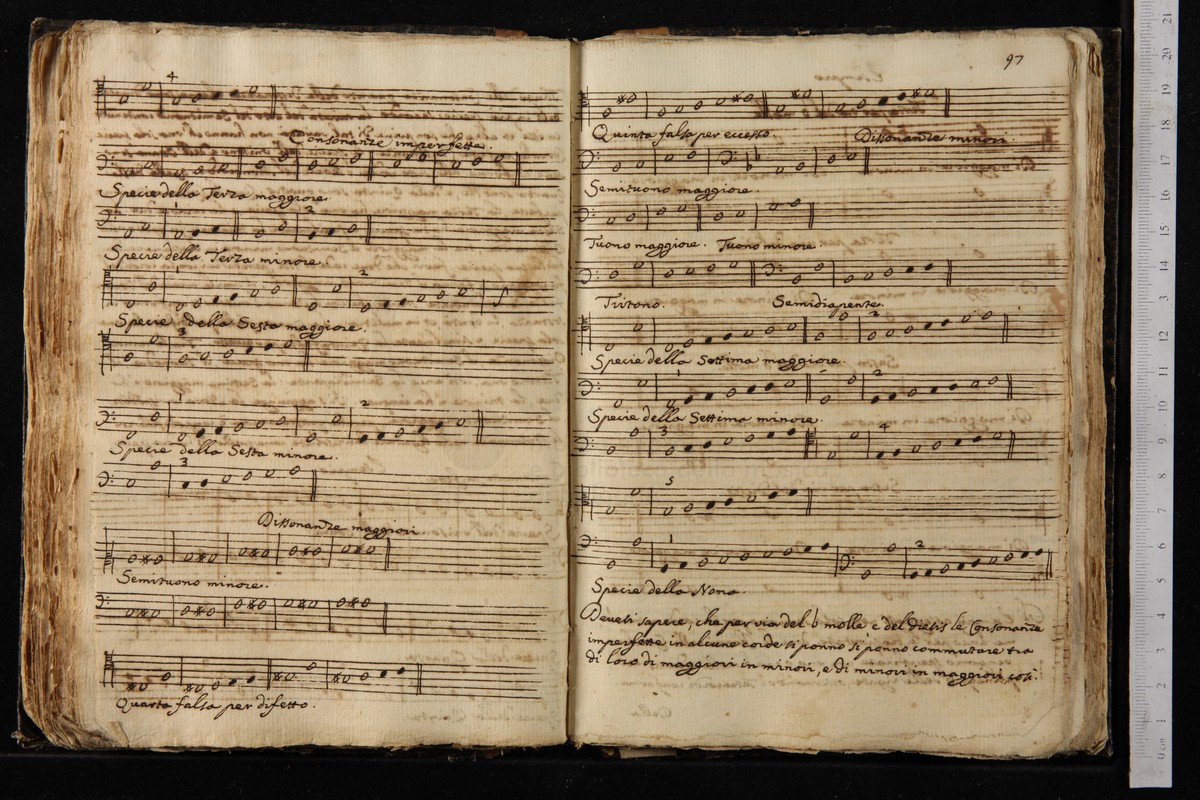 4
Consonanze imperfette.
Specie della Terza maggiore.
1 2
Specie della Terza minore.
1 2
Specie della Sesta maggiore.
3
1 2
Specie della Sesta minore.
3
Dissonanze maggiori.
Semituono minore.
Quarta falsa per difetto.
97
Quinta falsa per eccesso. Dissonanze minori.
Semituono maggiore.
Tuono maggiore. Tuono minore.
Tritono. Semidiapente.
2
Specie della Settima maggiore.
1 2
Specie della Settima minore.
3 4
5
1 2
Specie della Nona.
Devesi sapere, che per via del b molle, e del diesis le Consonanze
imperfette in alcune corde si ponno si ponno commutare tra
di loro di maggiori in minori, e di minori in maggiori così.
0 cm 1 2 3 4 5 6 7 8 9 10 11 12 13 14 15 16 17 18 19 20 21